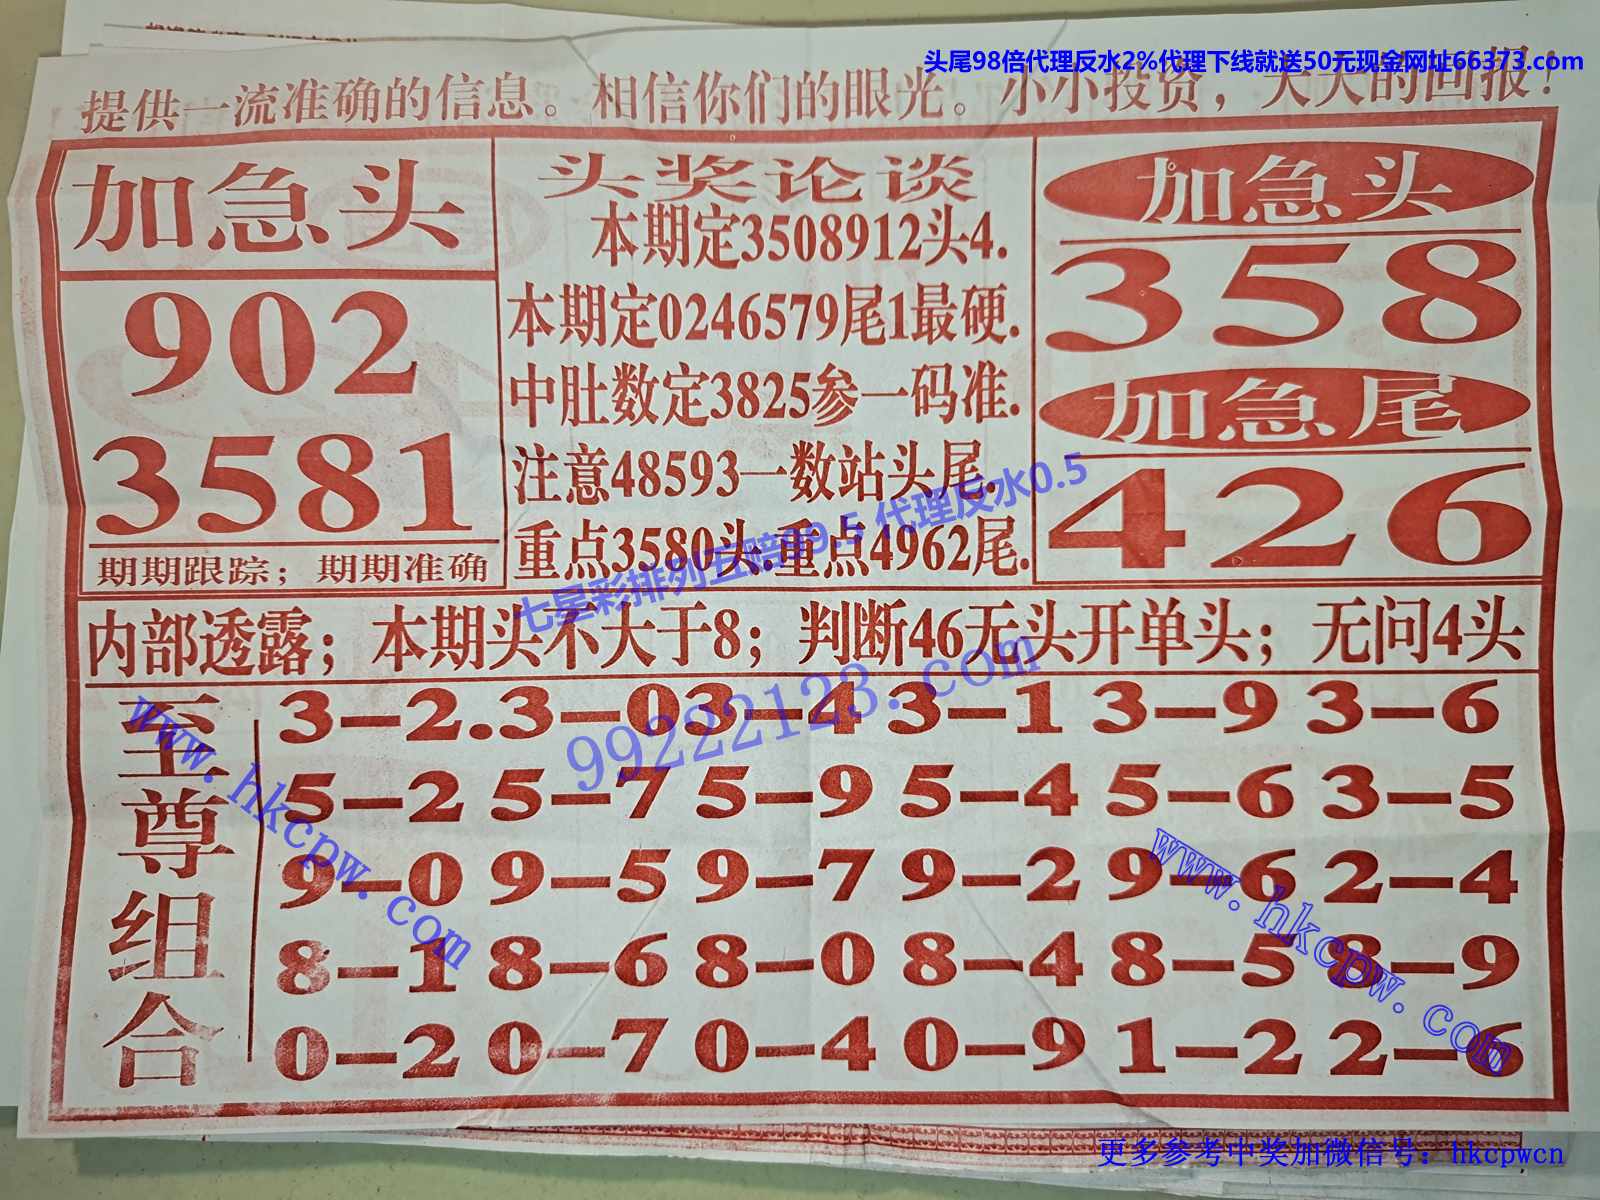 头尾98倍代理反水2%代理下线就送50元现金网址66373.com
提供一流准确的信息。相信你们的眼光。小小投资，天天的回报！
加急头
902
3581
期期跟踪；期期准确
头奖论谈
本期定3508912头4.
本期定0246579尾1最硬.
中肚数定3825参一码准.
注意48593一数站头尾.
重点3580头.重点4962尾.
加急头
358
加急尾
426
七星彩排列五赔99.5 代理反水0.5
内部透露；本期头不大于8；判断46无头开单头；无问4头
99222123.com
至尊组合
3—2.3—03—4 3—1 3—9 3—6
5—2 5—7 5—9 5—4 5—6 3—5
9—0 9—5 9—7 9—2 9—6 2—4
8—1 8—6 8—0 8—4 8—5 8—9
0—2 0—7 0—4 0—9 1—2 2—6
www.hkcpw.com
www.hkcpw.com
更多参考中奖加微信号：hkcpwcn